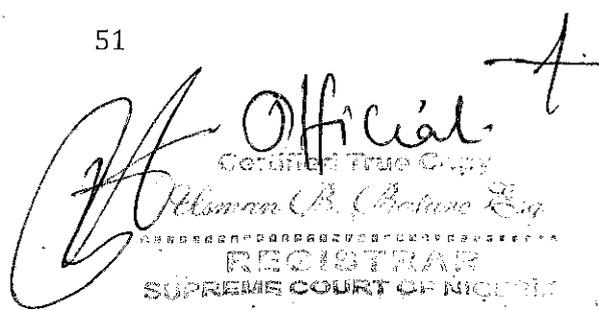 51
Official
Certified True Copy
Usman B.
REGISTRAR
SUPREME COURT OF NIGERIA